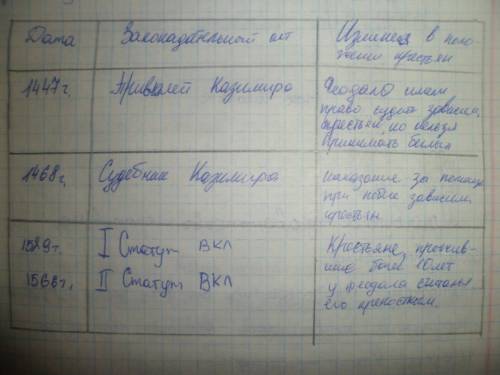 Дата
Законодательный акт
Изменен в поло
жении крестьян
1447г.
Привилей Казимира
Феодалы имели
право судить зависим.
крестьян, но нельзя
принимать беглых
1468г.
Судебник Казимира
наказание за помощь
при побеге зависим.
крестьян
1529г.
I Статут ВКЛ
1566г.
II Статут ВКЛ
Крестьяне, прожив-
шие более 10 лет
у феодала считались
его крепостным.